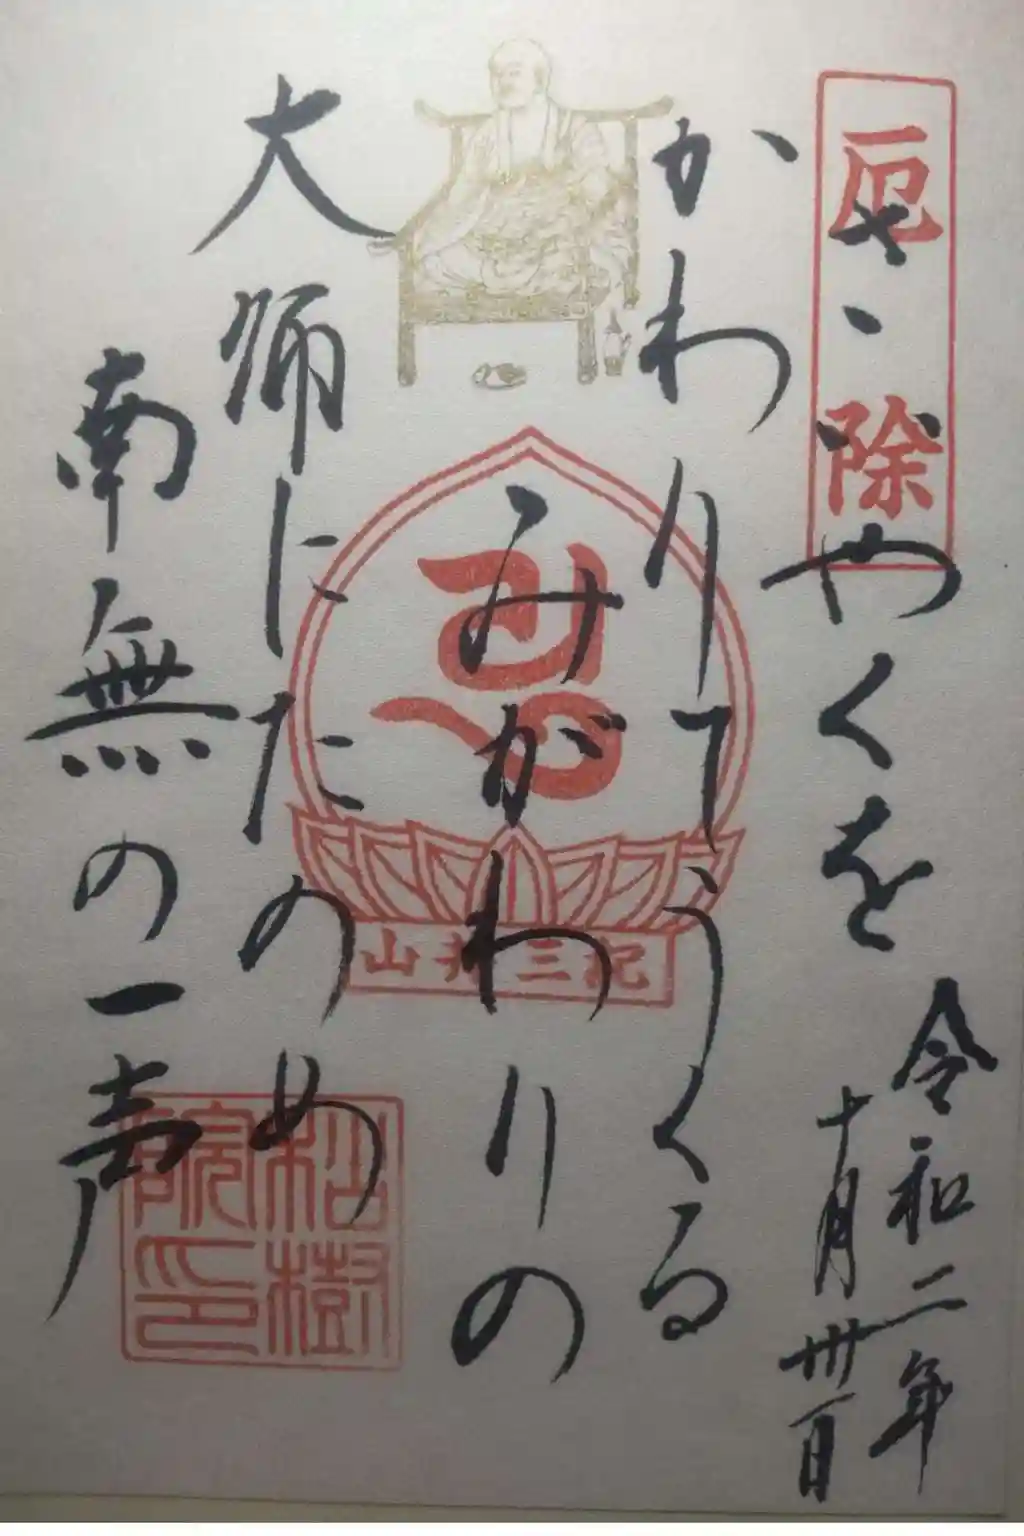 厄除
さゝやくを
かわりてうくる
みがわりの
大師にたのめ
南無の一声
令和二年
十月卅一日
山井三紀
松樹院印